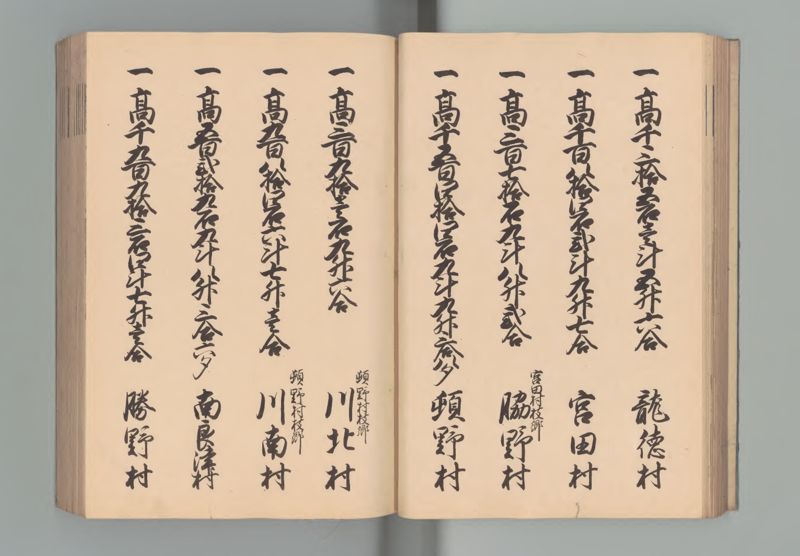 一高千三拾五石壱斗五升六合 龍徳村
一高千百八拾四石弐斗九升七合 宮田村
宮田村枝郷
一高三百七拾石九斗八升弐合 脇野村
一高千五百四拾四石九斗九升三合八夕 頓野村
頓野村枝郷
一高三百九拾壱石九升六合 川北村
頓野村枝郷
一高九百八拾四石六斗七升壱合 川南村
一高五百弐拾九石九斗八升三合六夕 南良津村
一高千九百九拾三石四斗七升壱合 勝野村